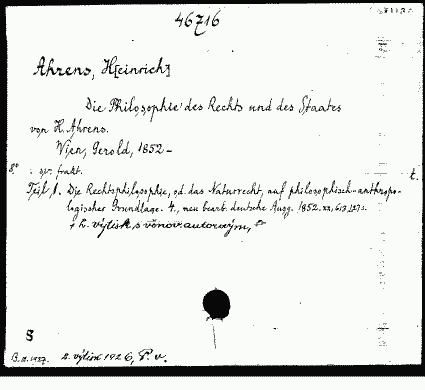 46716
Ahrens, H[einrich]
Die Philosophie des Rechts und des Staates
von H. Ahrens.
Wien, Gerold, 1852 -
8°
Teil 1. Die Rechtsphilosophie, od. das Naturrecht, auf philosophisch-anthropo-
logischer Grundlage. 4., neu bearb. deutsche Ausg. 1852.
výtisk s věnov. autorovým,
S
výtisk 1926, P. v.